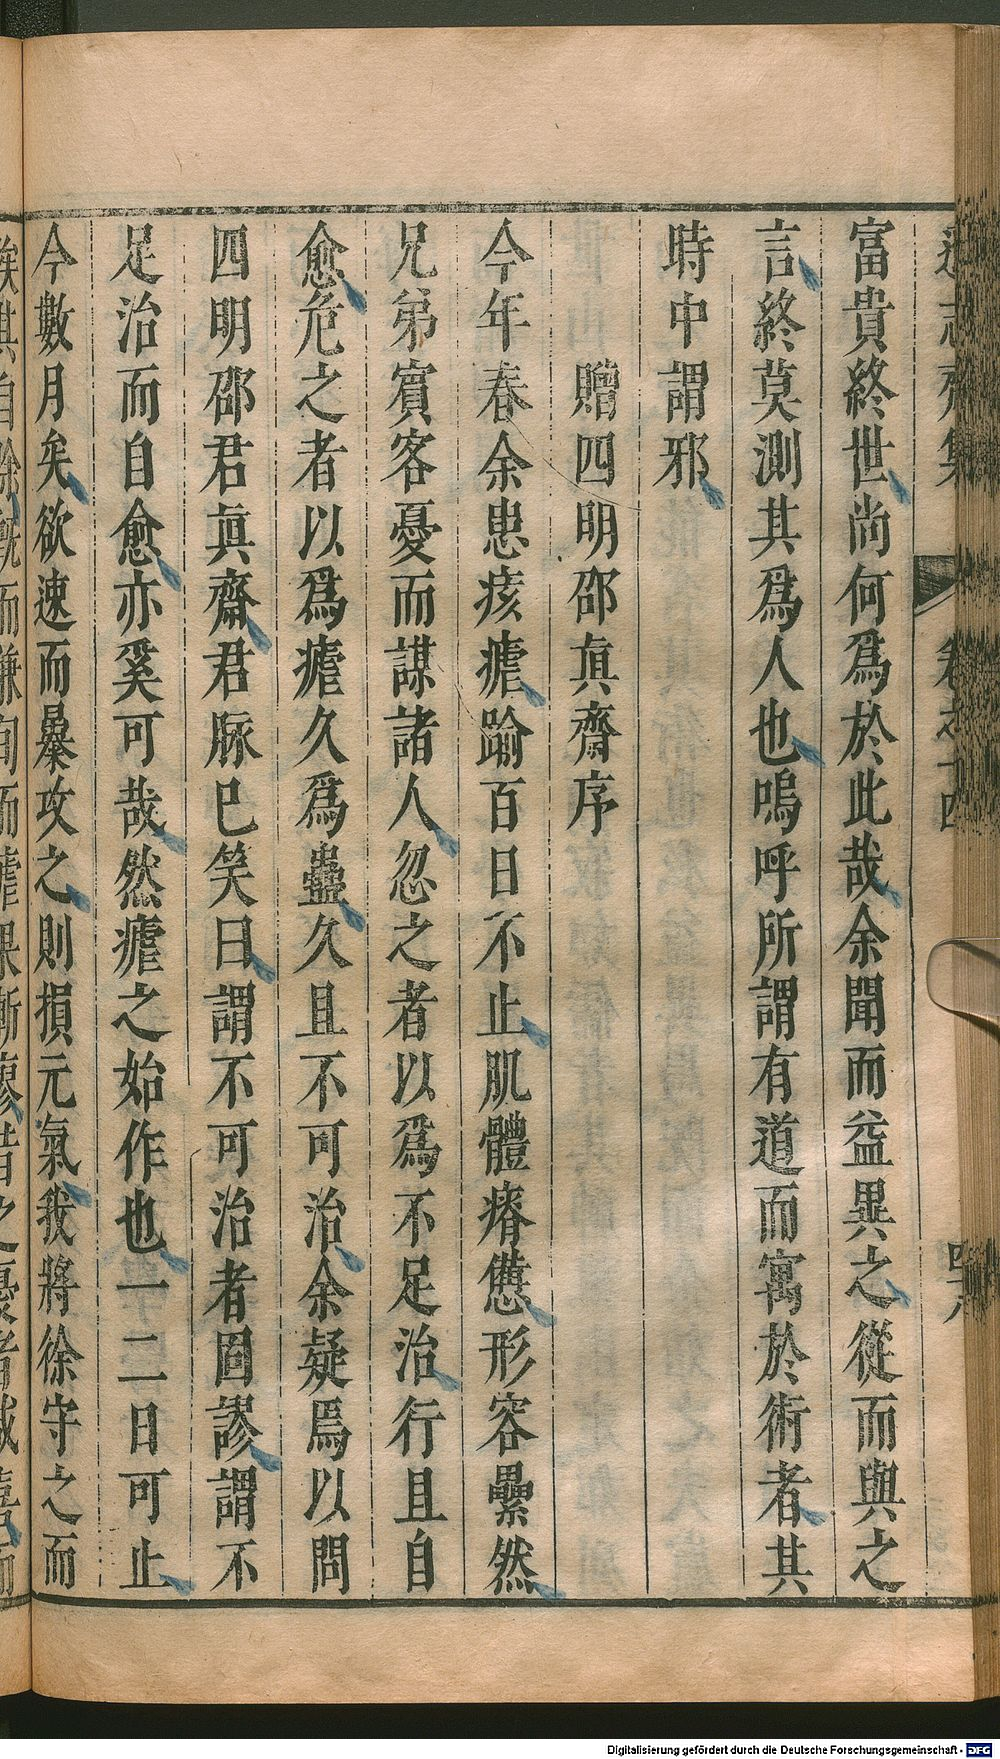 遜志齋集
卷之十四
四八
富貴終世尚何爲於此哉余聞而益異之從而與之
言終莫測其爲人也嗚呼所謂有道而寓於術者其
時中謂邪
贈四明邵眞齋序
今年春余患痎瘧踰百日不止肌體瘠憊形容纍然
兄弟賓客憂而謀諸人忽之者以爲不足治行且自
愈危之者以爲瘧久爲蠱久且不可治余疑焉以問
四明邵君眞齋君脉已笑曰謂不可治者固謬謂不
足治而自愈亦奚可哉然瘧之始作也一二日可止
今數月矣欲速而暴攻之則損元氣我將徐守之而
俟其自除既而兼旬而瘧果漸瘳昔之憂者咸喜而
Digitalisierung gefördert durch die Deutsche Forschungsgemeinschaft - DFG